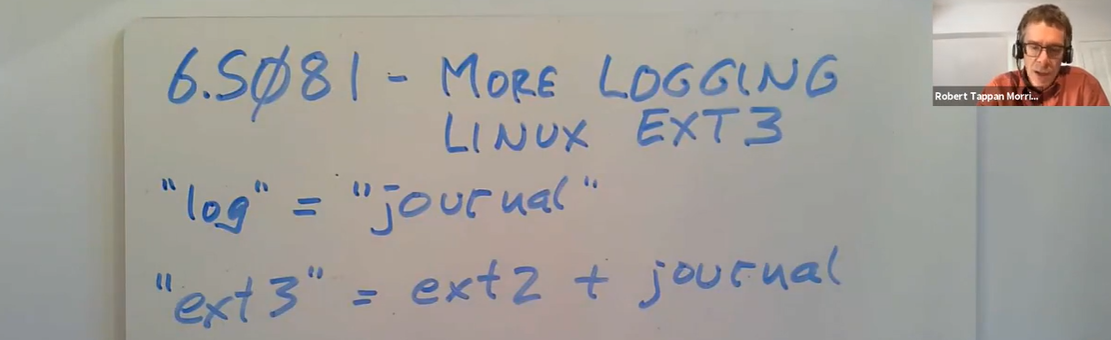 6.S081 - MORE LOGGING
LINUX EXT3
"log" = "journal"
"ext3" = ext2 + journal
Robert Tappan Morri...